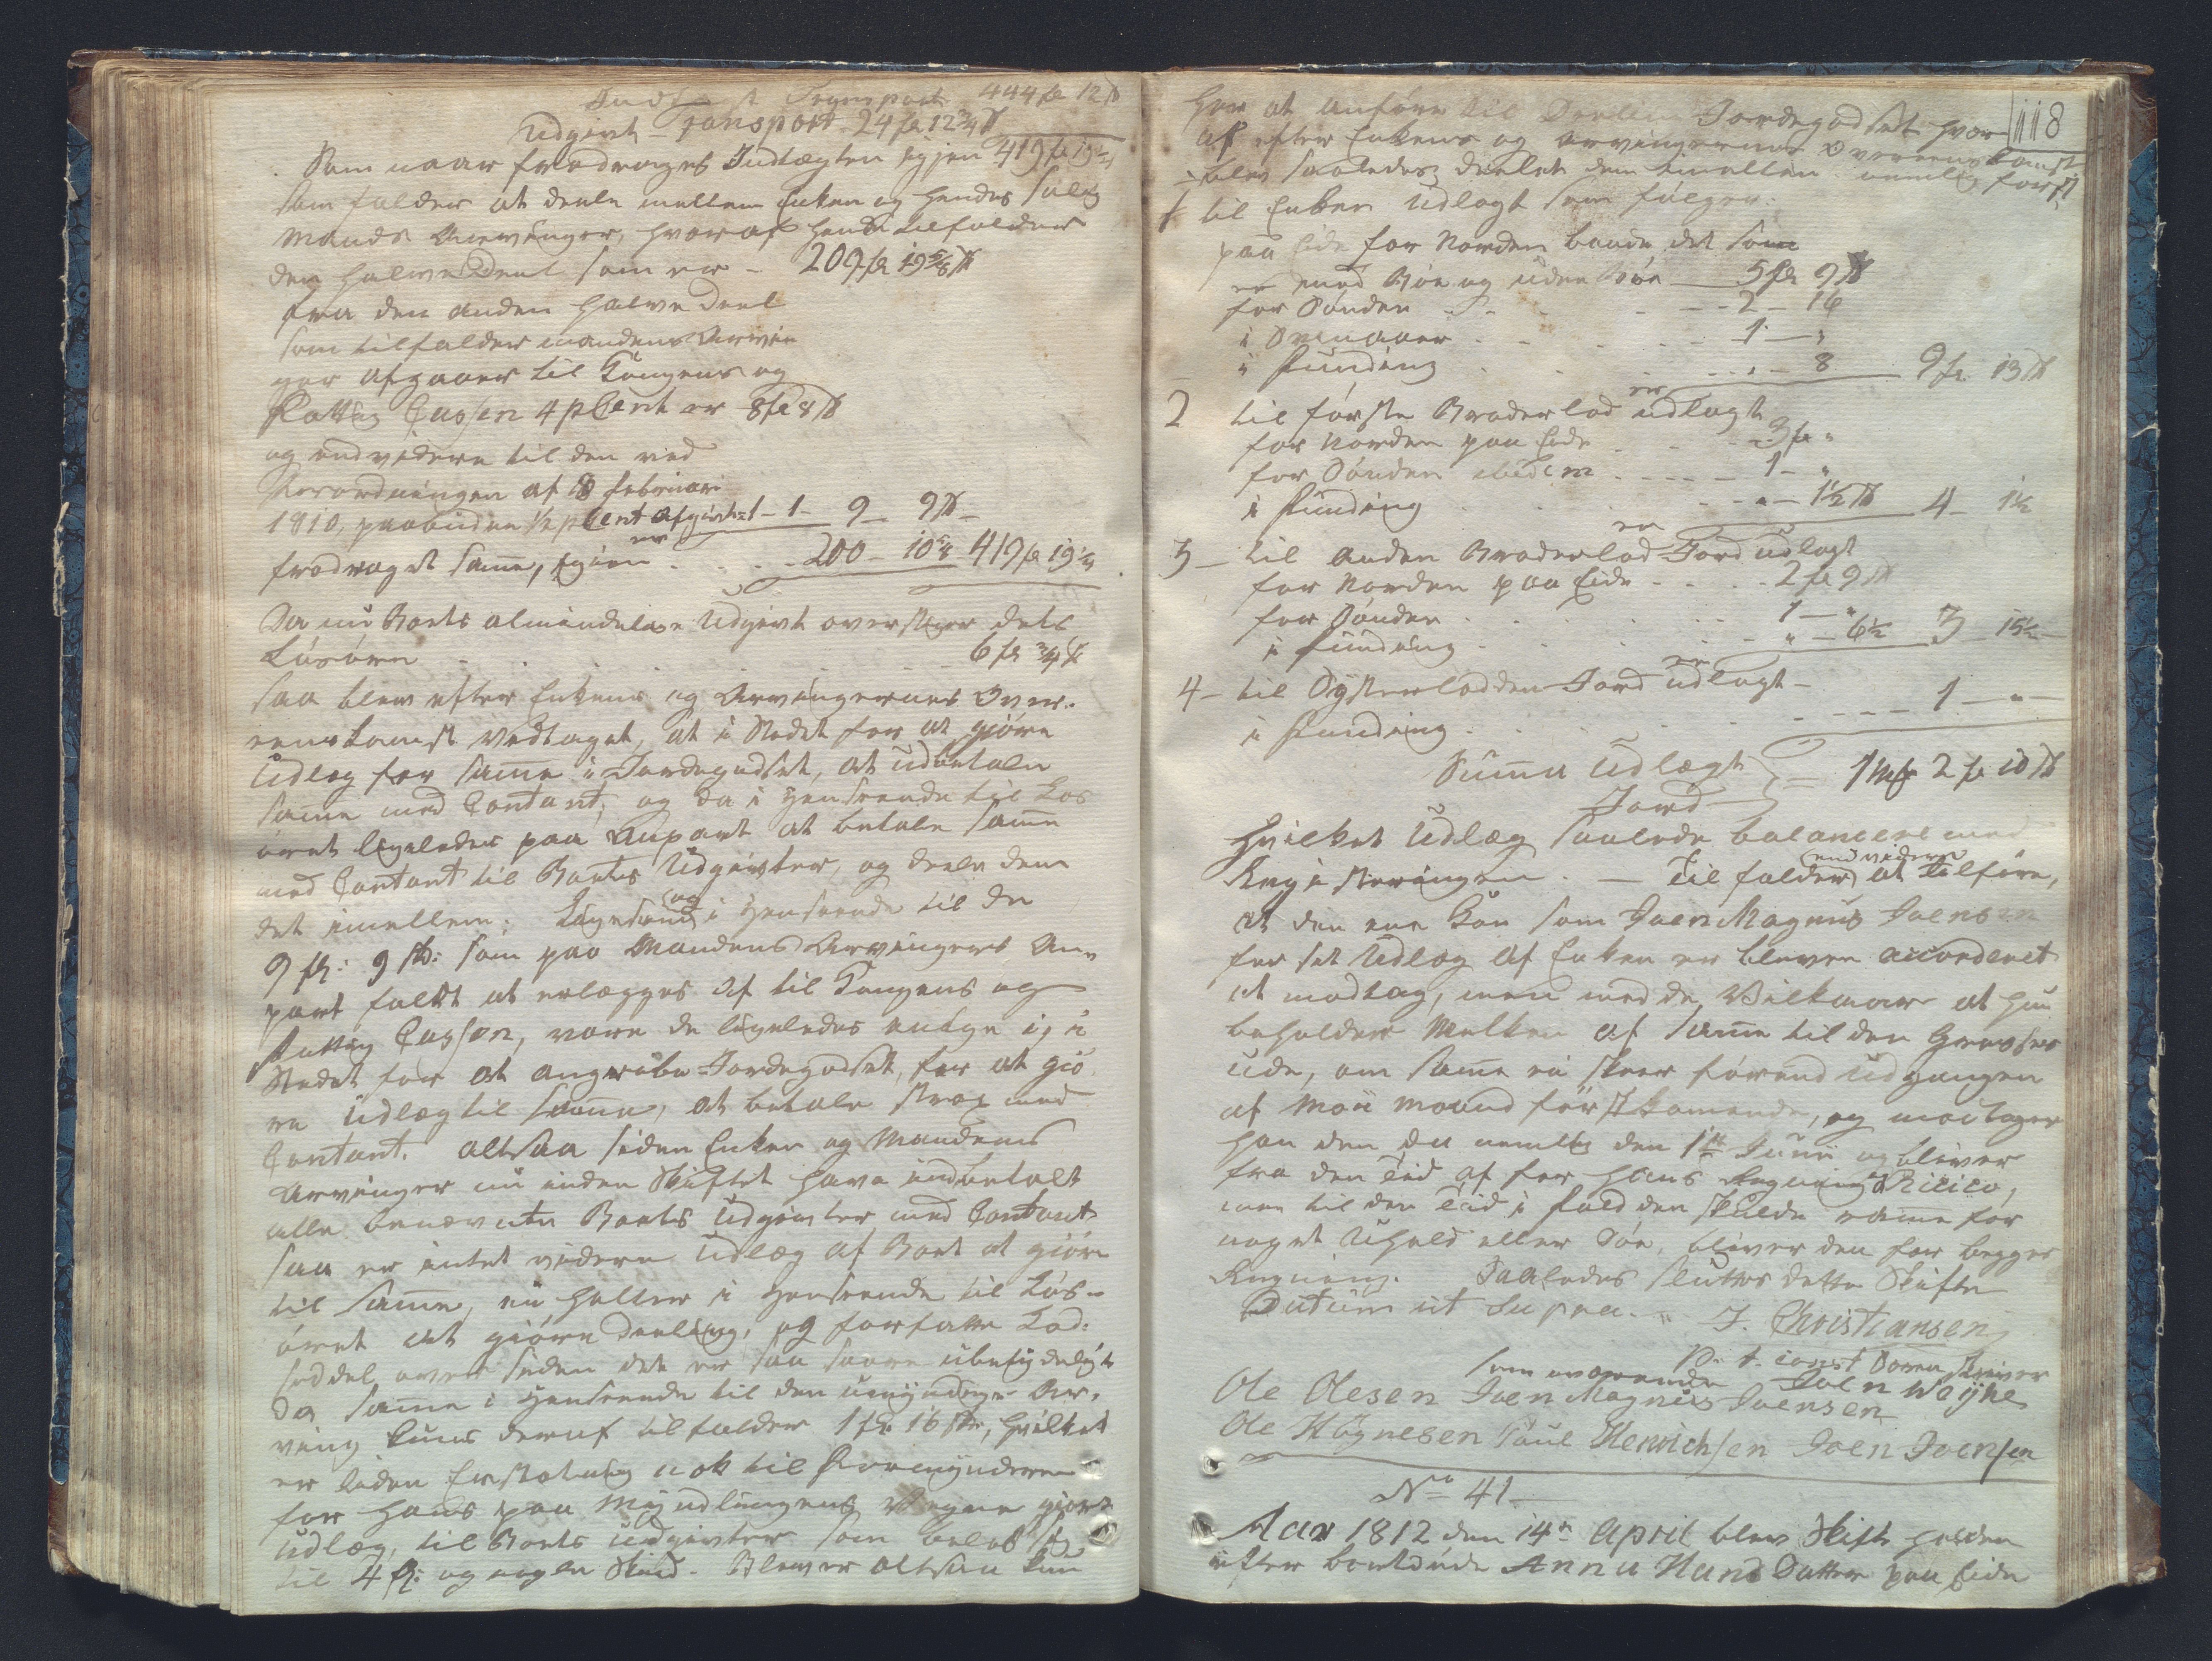 Indtægt Transport 444 fl 12 s
Udgivt Transport 24 fl 12 3/4 s
Som naar fradrages Indtægten igjen 419 fl 19 1/4
som falder at deele mellem Enken og hendes salig
Mands Arvinger, hvoraf hende tilfalder
den halve Deel som er - 209 fl 19 5/8 s
fra den anden halve Deel
som tilfalder mandens Arvin
ger afgaaer til Kongens og
Fattig Cassen 4 pCent er 8 fl 8 s
og endvidere til den ved
Forordningen af 8 Februari
1810, paabudne 1/2 pCent Afgivt er 1 - 1 - 9 - 9 s
fradraget samme, igjen . . . 200 - 10 5/8 419 fl 19 1/4
Da nu Boets almindelige Udgivt overstiger dets
Løsøren - . . . 6 fl 3/4 s
saa blev efter Enkens og Arvingernes Over-
eenskomst vedtaget, at i Stedet for at giøre
Udlæg for samme i Jordegodset, at udbetale
samme med Contant, og da i Henseende til Løs
øret ligeledes paa Anpart at betale samme
med Contant til Boets Udgivter, og deele dem
det imellem; Ligesaa og i Henseende til de
9 fl: 9 sk: som paa Mandens Arvingers An-
part faldt at erlægges af til Kongens og
Fattig Cassen, vare de ligeledes enige i, i
Stedet for at angribe Jordegodset, for at giö
re Udlæg til samme, at betale strax med
Contant. Altsaa siden Enken og Mandens
Arvinger nu inden Skiftet have indbetalt
alle benævnte Boets Udgivter med Contant
saa er intet videre Udlæg af Boet at giöre
til samme, ei heller i Henseende til Løs-
øret at giöre Deeling, og forfatte Lod-
seddel over siden det er saa saare ubetydeligt
da samme i Henseende til den umyndige Ar-
ving kuns deraf tilfalder 1 fl 16 sk, hvilket
er liden Erstatning nok til Formynderen
for hans paa Myndlingens Vegne giort
udlæg, til Boets udgivter som beløb sig
til 4 fl: og nogle Skind. Blev altsaa kun
118
her at anføre til Deeling Jordegodset hvor
af efter Enkens og Arvingernes Overeenskomst
blev saaledes deelet dem imellem nemlig først
1 til Enken Udlagt som følger:
paa Eide for Norden baade det som
er med Bøe og uden Bøe 5 fl 9 s
for Sønden . . 2 - 16
i Svinaaer . . 1 - "
i Funding . . " - 8 9 fl 13 s
2 til første Broderlod er udlagt
for Norden paa Eide . . 3 fl "
for Sønden ibidem . . 1 - "
i Funding . . " - 1 1/2 s 4 - 1 1/2
3 - til anden Broderlod er Jord udlagt
for Norden paa Eide . . 2 fl 9 s
for Sønden . . 1 - "
i Funding . . " - 6 1/2 3 - 15 1/2
4 - til Systerlodden Jord er udlagt -
i Funding . . 1 - " -
Summa Udlagt
Jord = 1 Mk 2 fl 10 s
Hvilket Udlæg saalede balancere med
Registeringen. - Til falder endvidere at tilføre,
at den ene Koe som Joen Magnus Joensen
for sit Udlæg af Enken er bleven accorderet
at modtag, men med de Vilkaar at hun
beholder Melken af samme til den Græsses
ude, om samme ei skeer førend udgangen
af Maii maaned førstkomende, og modtager
han den da nemlig den 1te Junii og bliver
fra den Tid af for hans Regning & Risico,
men til den Tid i fald den skulde ramme for
noget Uheld eller Døe, bliver den for begges
Regning. Saaledes sluttes dette Skifte
Datum ut Supra. " J. Christiansen
p. t. const Sorenskriver
som nærværende Joen Weyhe
Ole Olesen Joen Magnus Joensen
Ole Høgnesen Poul Henrichsen Joen Joensen
No 41
Aar 1812 den 14de April blev Skifte holden
efter bortdøde Anna Hans Datter paa Eide